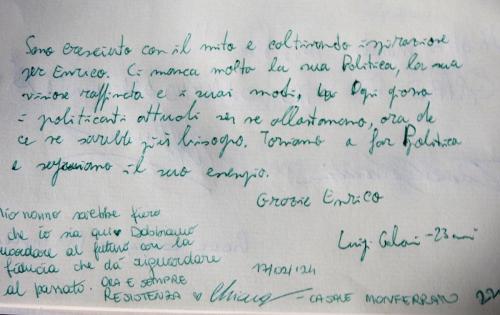 Sono cresciuto con il mito e coltivando ispirazione
per Enrico. Ci manca molto la sua Politica, la sua
visione raffinata e i suoi modi, Ogni giorno
i politicanti attuali se ne allontanano, ora che
ce ne sarebbe più bisogno. Torniamo a far Politica
e seguiamo il suo esempio.
Grazie Enrico
Luigi - 23 anni
Mio nonno sarebbe fiero
che io sia qui Dobbiamo
guardare al futuro con la
fiducia che dà riguardare
al passato. ORA E SEMPRE
RESISTENZA
17/02/24
Chiara - CASALE MONFERRATO
22